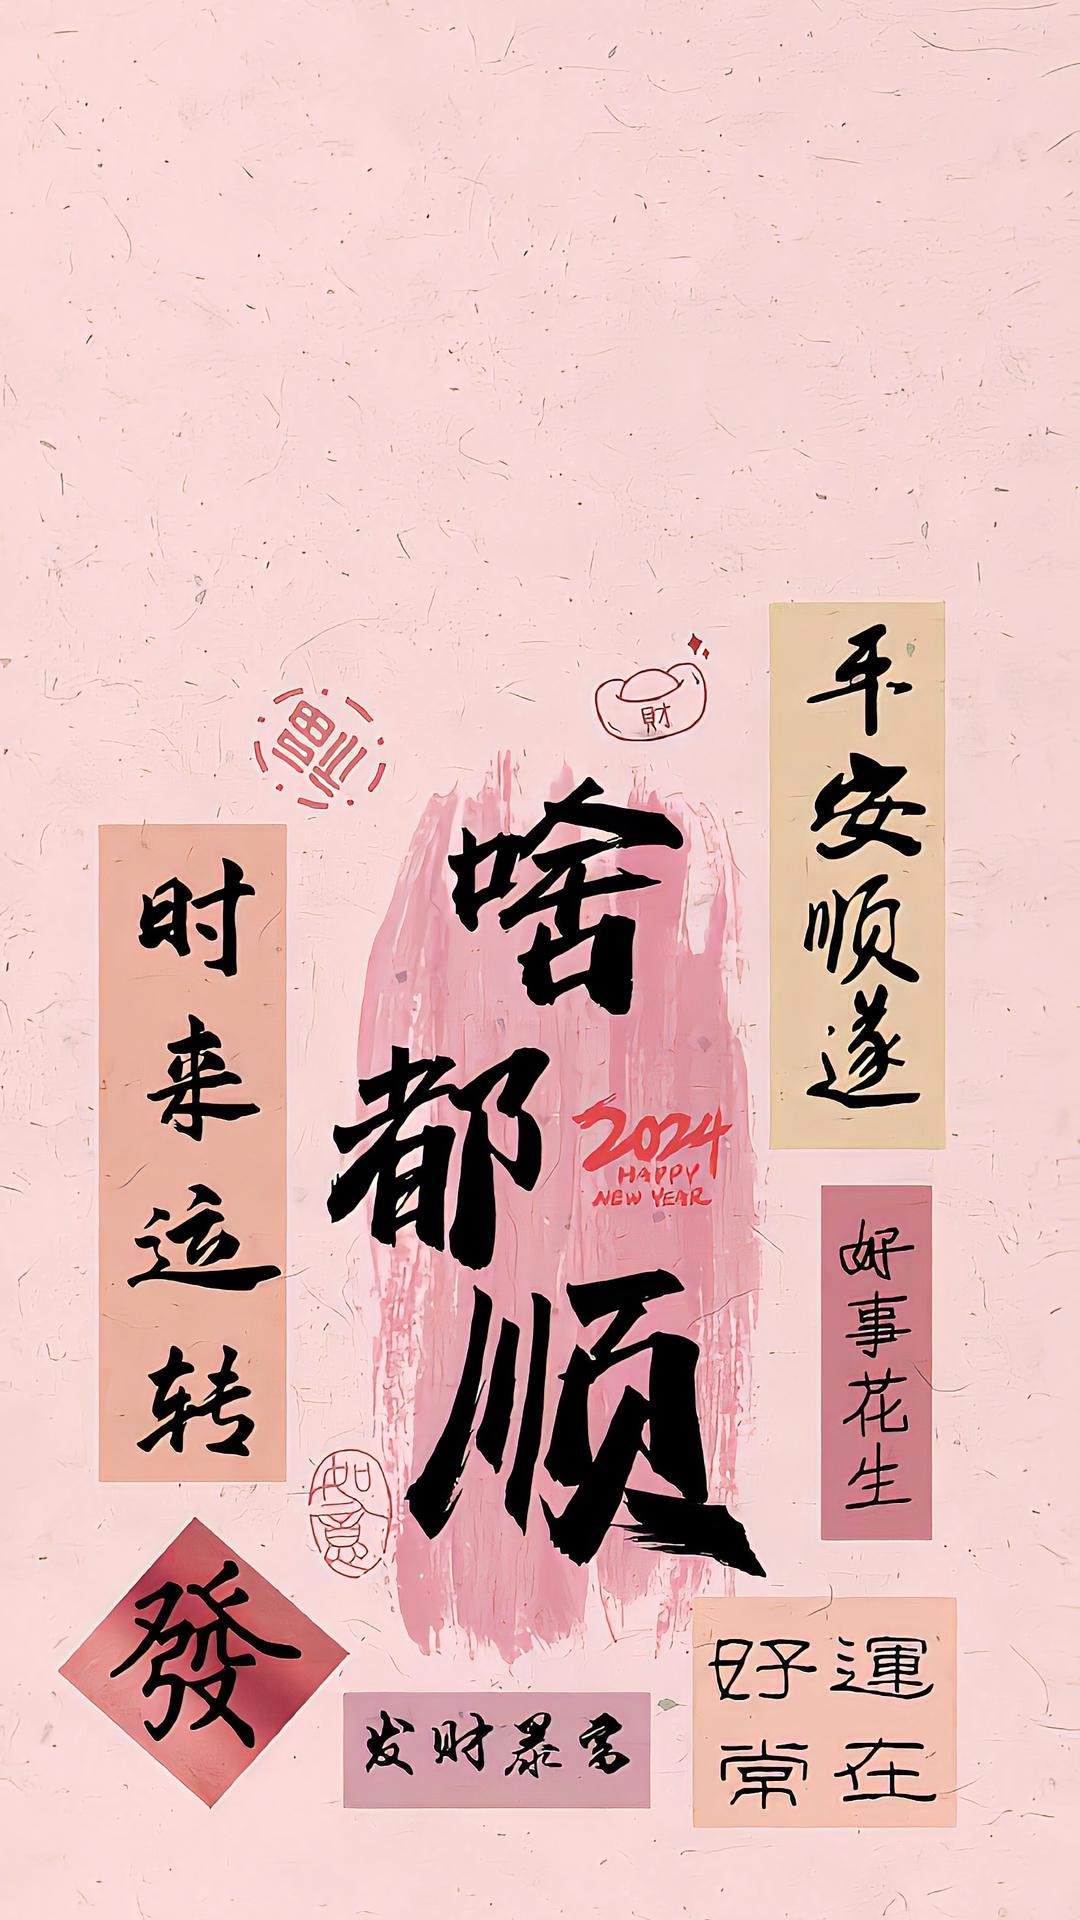 福
財
平安顺遂
啥都顺
时来运转
2024
HAPPY
NEW YEAR
好事花生
如意
發
发财暴富
好運
常在